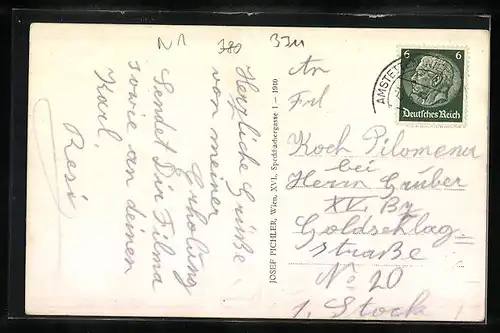 N 1
380
334
Herzliche Grüße
von meiner
Erholung
Sendet Dir Filma
sowie an deinen
Karl.
Resi
JOSEF PICHLER, Wien, XVI, Speckbachergasse 1 — 1910
6 6
Deutsches Reich
AMSTET
An
Frl
Koch Pilomena
bei
Herrn Gruber
XV. By
Goldschlag-
straße
No 20
1. Stock